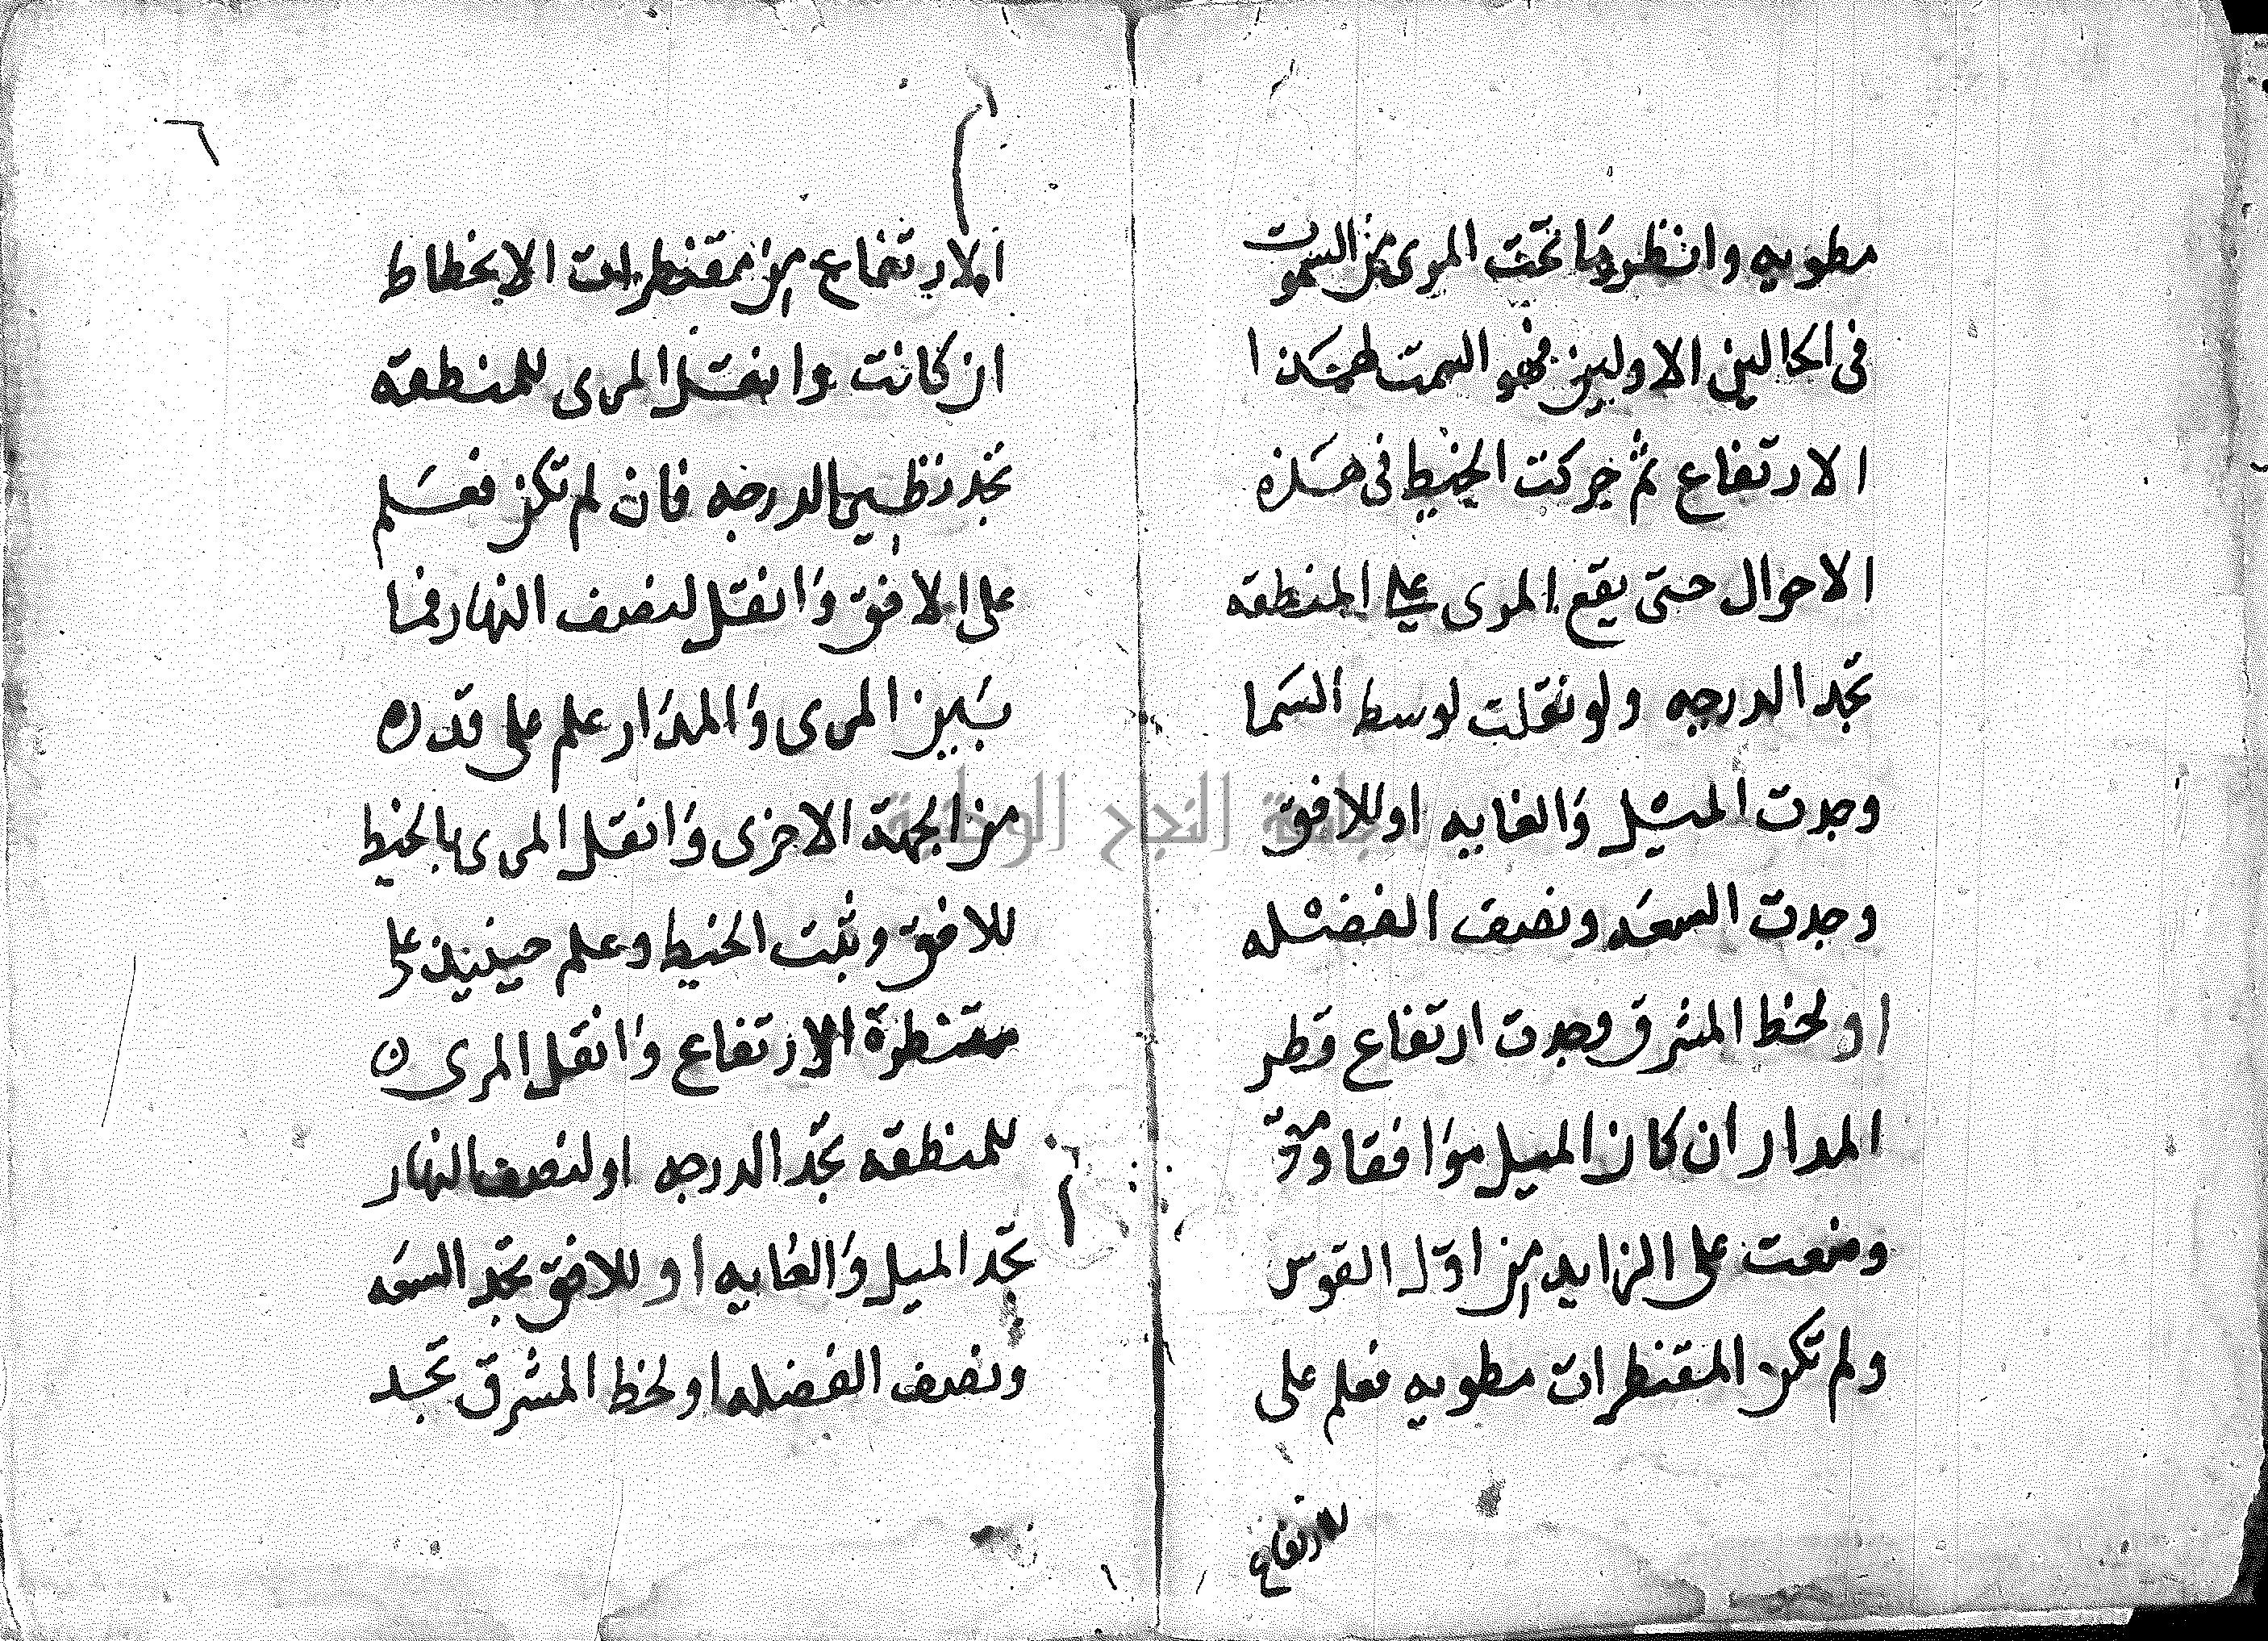 مطويه وانظر ما تحت المرى من السموت
فى الحالين الاولين فهو السمت لهذا
الارتفاع ثم حركت الخيط فى هذه
الاحوال حتى يقع المرى على المنطقه
تجد الدرجه ولو نقلت لوسط السما
وجدت الميل والغايه او للافق
وجدت السعه ونصف الفضله
او لخط المشرق وجدت ارتفاع قطر
المدار ان كان الميل موافقا ومتى
وضعت على الزايد من اول القوس
ولم تكن المقنطرات مطويه فعلم على
الارتفاع
٦
الارتفاع من مقنطرات الانحطاط
ان كانت وانقل المرى للمنطقه
تجد نظير الدرجه فان لم تكن فعلم
على الافق وانقل لنصف النهار فما
بين المرى والمدار علم على قدره
من الجهة الاخرى وانقل المرى بالخيط
للافق وثبت الخيط وعلم حينيذ على
مقنطرة الارتفاع وانقل المرى ن
للمنطقه تجد الدرجه او لنصف النهار
تجد الميل والغايه او للافق تجد السعه
ونصف الفضله او لخط المشرق تجد
جامعة النجاح الوطنية